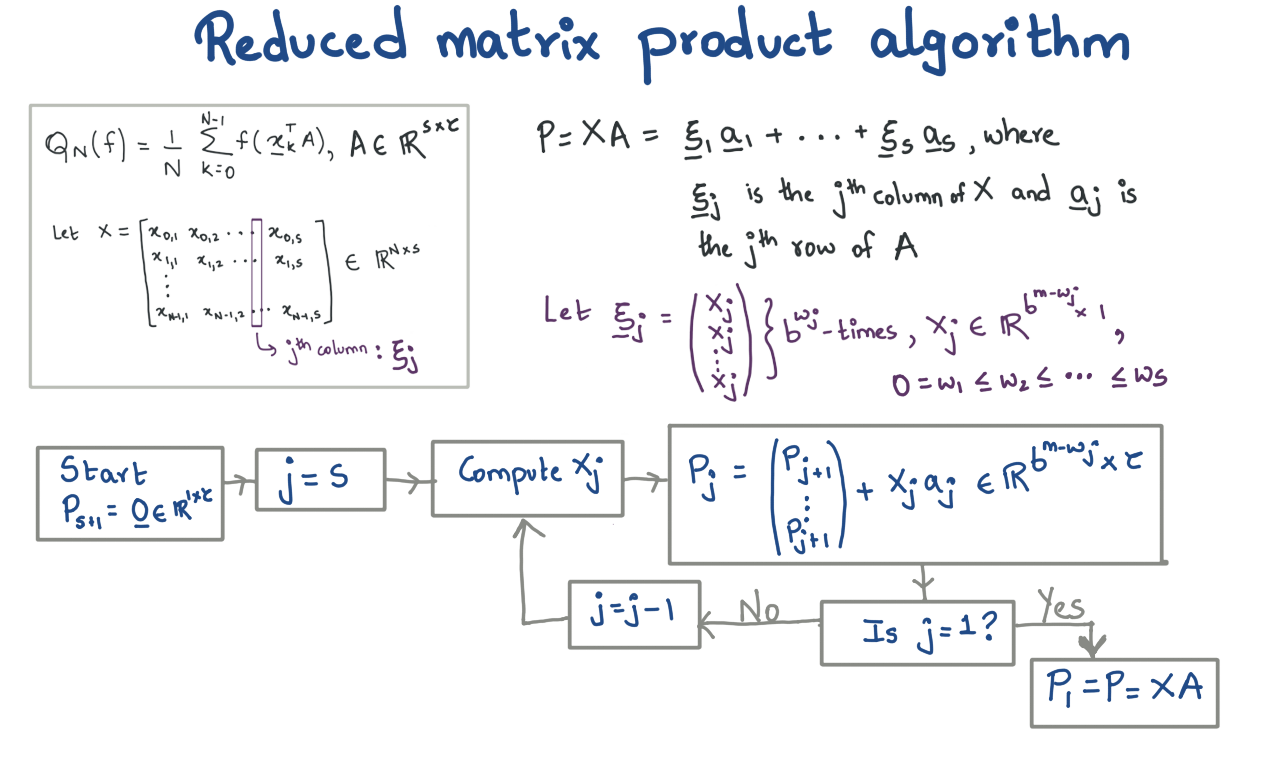 Reduced matrix product algorithm
Q_N(f) = 1/N ∑_{k=0}^{N-1} f(x_k^T A), A ∈ ℝ^{s×τ}
Let X = [x_{0,1} x_{0,2} ··· x_{0,s}
x_{1,1} x_{1,2} ··· x_{1,s}
⋮
x_{N-1,1} x_{N-1,2} ··· x_{N-1,s}] ∈ ℝ^{N×s}
↳ j^th column : ξ_j
P = XA = ξ_1 a_1 + ... + ξ_s a_s, where
ξ_j is the j^th column of X and a_j is
the j^th row of A
Let ξ_j = (X_j X_j ⋮ X_j) } b^{w_j}-times, X_j ∈ ℝ^{b^{m-w_j} × 1},
0 = w_1 ≤ w_2 ≤ ··· ≤ w_s
Start
P_{s+1} = 0 ∈ ℝ^{1×τ}
j = s
Compute X_j
P_j = (P_{j+1} ⋮ P_{j+1}) + X_j a_j ∈ ℝ^{b^{m-w_j} × τ}
Is j=1?
No
j=j-1
Yes
P_1 = P = XA